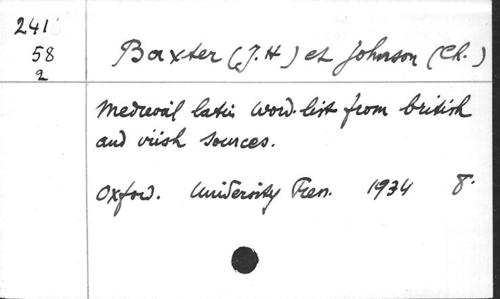 241
58
2
Baxter (J.H) et Johnson (Ch.)
Medieval latin word-list from british
and irish sources.
Oxford. University Press. 1934 8°